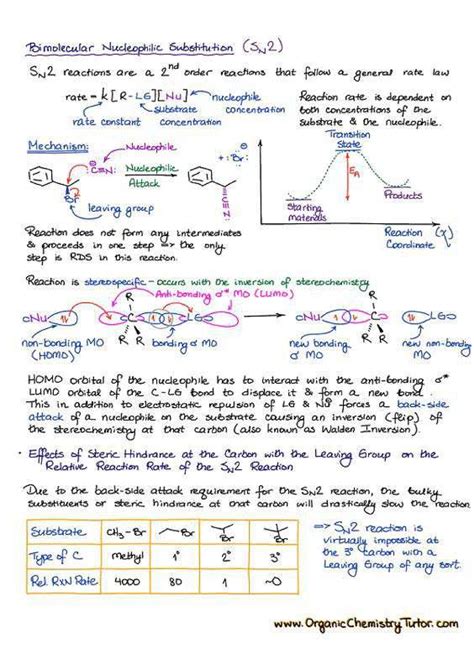 Bimolecular Nucleophilic Substitution (SN2)
SN2 reactions are a 2nd order reactions that follow a general rate law
rate = k[R-LG][Nu]
nucleophile concentration
substrate concentration
rate constant
Reaction rate is dependent on
both concentrations of the
substrate & the nucleophile.
Mechanism:
Nucleophile
:C≡N:
Br
leaving group
Nucleophilic
Attack
+ :Br:
C≡N:
Transition
State
EA
Starting
materials
Products
Reaction (x)
Coordinate
Reaction does not form any intermediates
& proceeds in one step => the only
step is RDS in this reaction.
Reaction is stereospecific - occurs with the inversion of stereochemistry
Anti-bonding σ* MO (LUMO)
Nu
R
C
R
R
LG
non-bonding MO
(HOMO)
bonding σ MO
Nu
C
R
R
R
LG
new bonding
σ MO
new non-bonding
MO
HOMO orbital of the nucleophile has to interact with the anti-bonding σ*
LUMO orbital of the C-LG bond to displace it & form a new bond.
This in addition to electrostatic repulsion of LG & Nu forces a back-side
attack of a nucleophile on the substrate causing an inversion (flip) of
the stereochemistry at that carbon (also known as Walden Inversion).
• Effects of Steric Hindrance at the Carbon with the Leaving Group on the
Relative Reaction Rate of the SN2 Reaction
Due to the back-side attack requirement for the SN2 reaction, the bulky
substituents or steric hindrance at that carbon will drastically slow the reaction
Substrate CH3-Br Br Br Br
Type of C methyl 1° 2° 3°
Rel. RxN Rate 4000 80 1 ~0
=> SN2 reaction is
virtually impossible at
the 3° carbon with a
Leaving Group of any sort.
www.OrganicChemistryTutor.com